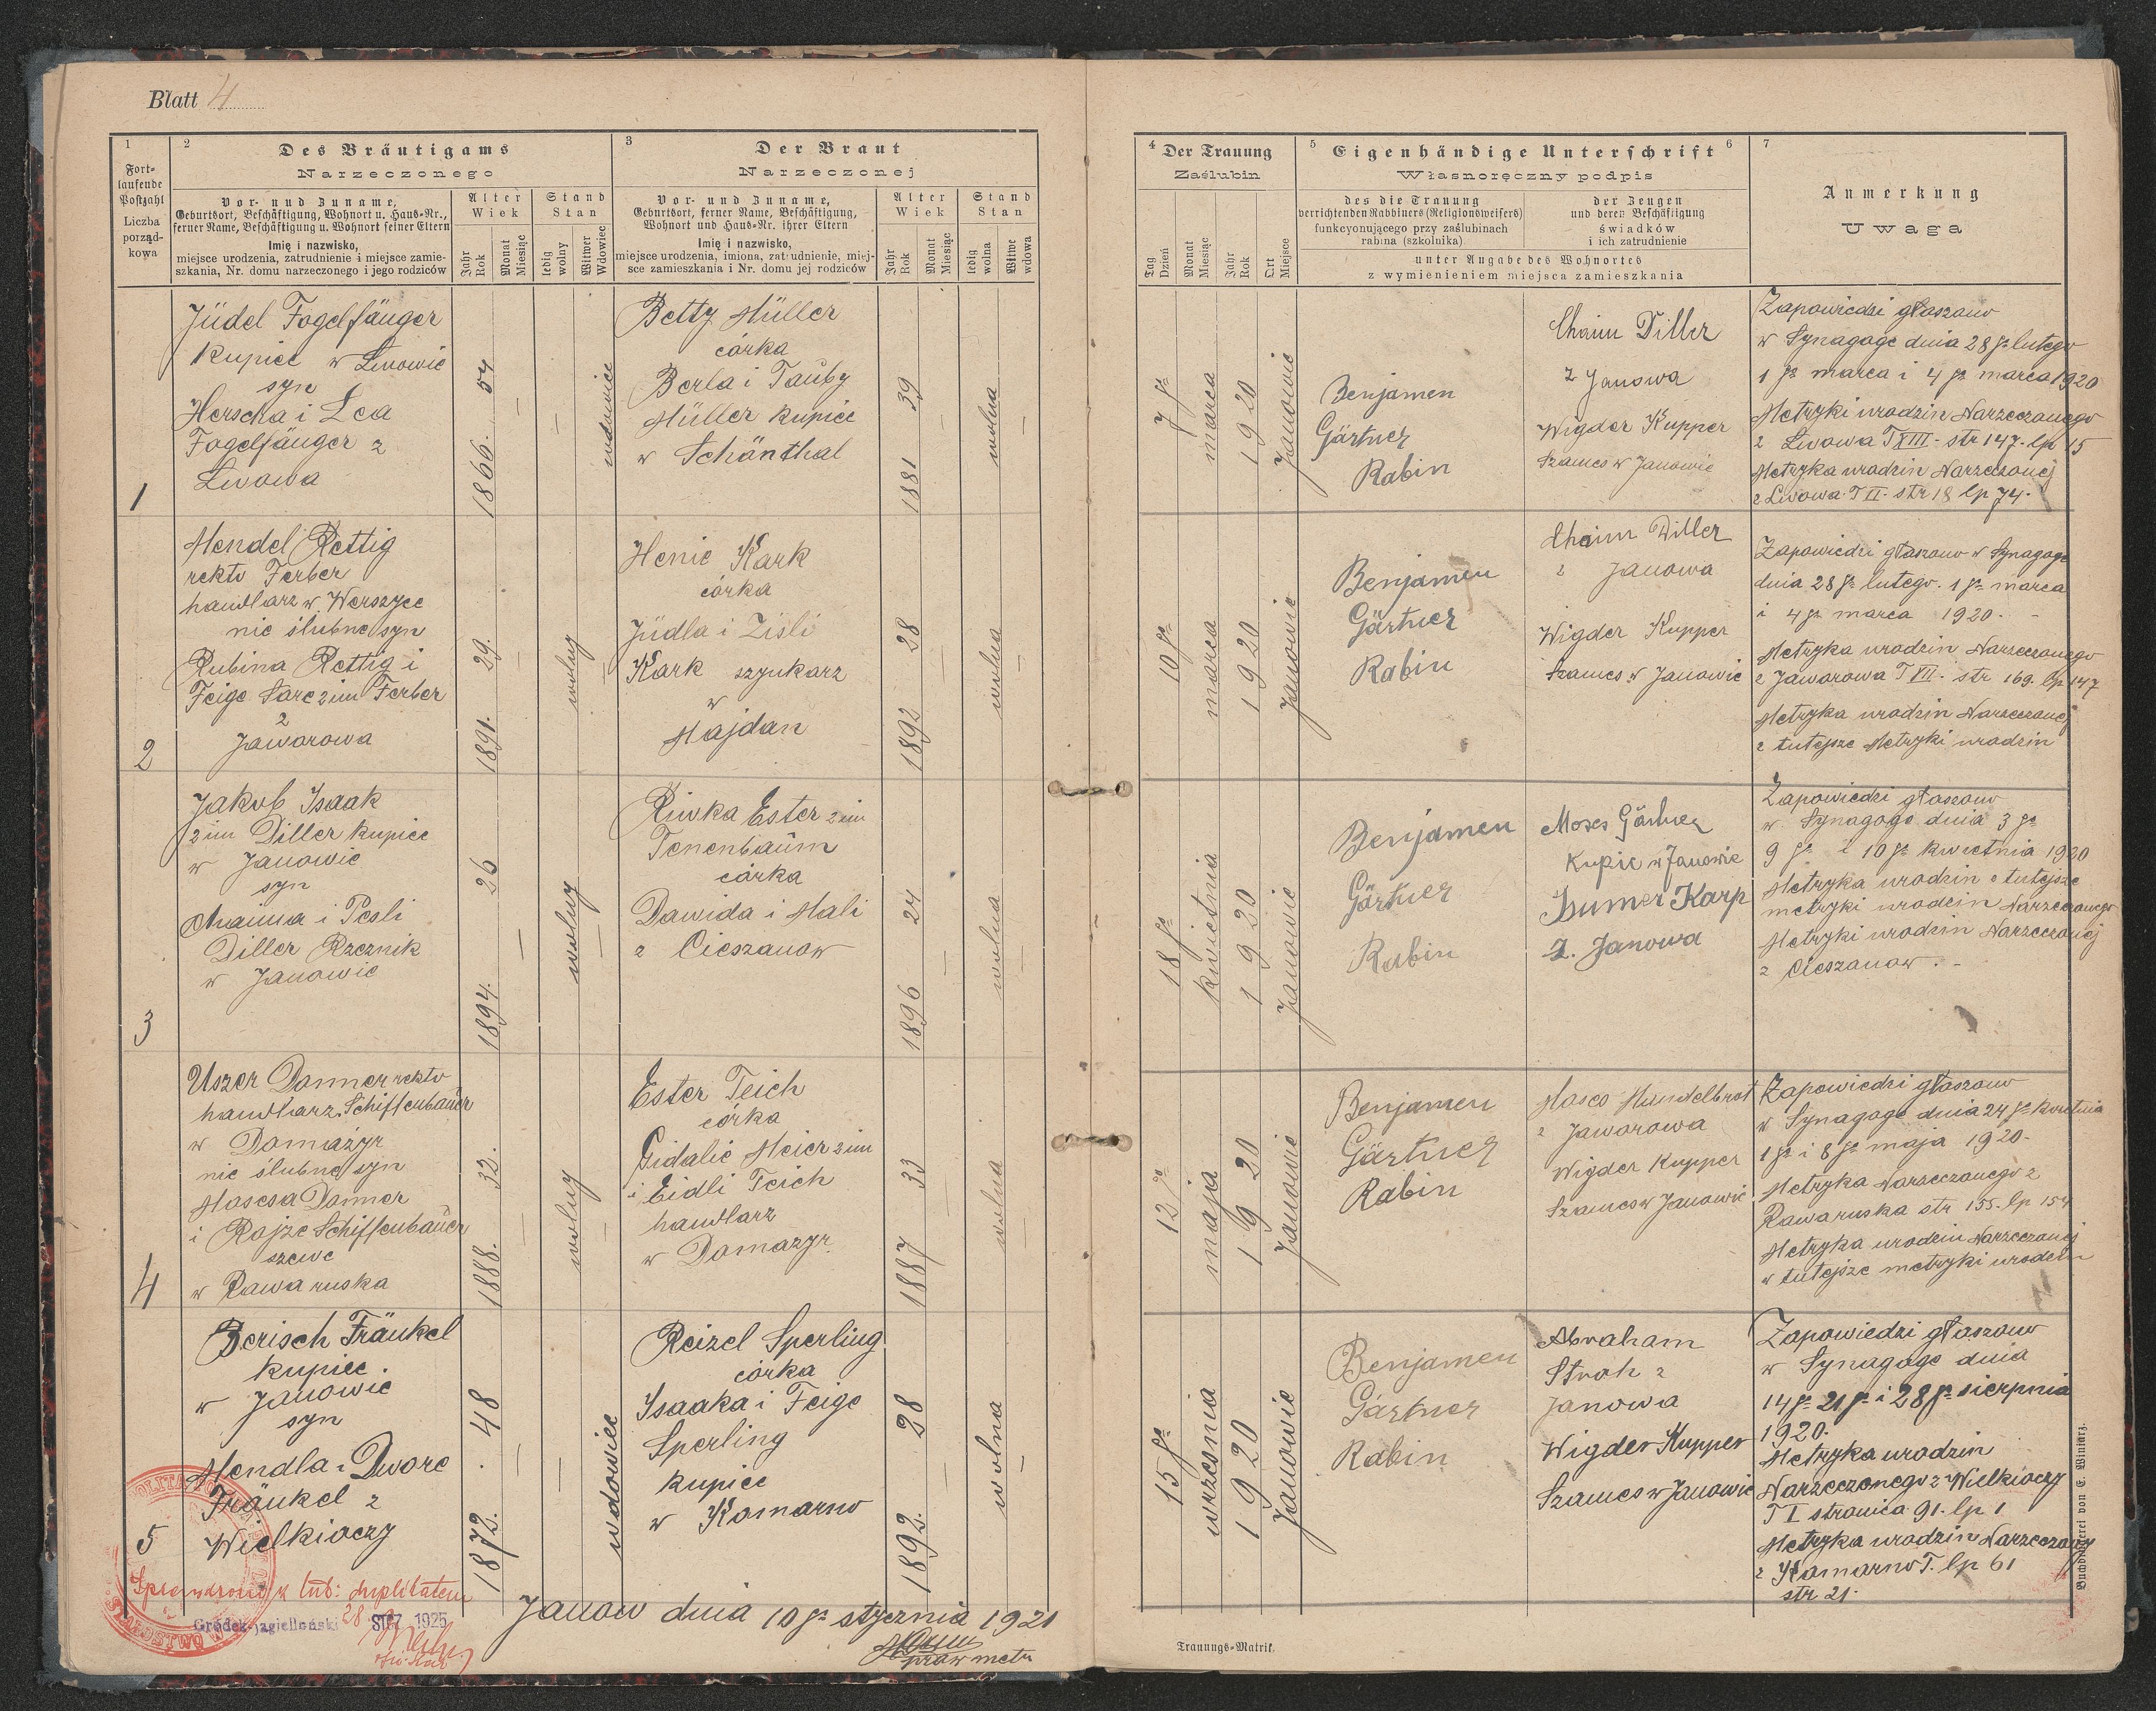 Blatt 4
1
Fort-
laufende
Postzahl
Liczba
porząd-
kowa
2
Des Bräutigams
Narzeczonego
Vor- und Zuname,
Geburtsort, Beschäftigung, Wohnort u. Haus-Nr.,
ferner Name, Beschäftigung u. Wohnort seiner Eltern
Imię i nazwisko,
miejsce urodzenia, zatrudnienie i miejsce zamie-
szkania, Nr. domu narzeczonego i jego rodziców
Alter
Wiek
Jahr
Rok
Monat
Miesiąc
Stand
Stan
ledig
wolny
Witwer
Wdowiec
3
Der Braut
Narzeczonej
Vor- und Zuname,
Geburtsort, ferner Name, Beschäftigung,
Wohnort und Haus-Nr. ihrer Eltern
Imię i nazwisko,
miejsce urodzenia, imiona, zatrudnienie, miej-
sce zamieszkania i Nr. domu jej rodziców
Alter
Wiek
Jahr
Rok
Monat
Miesiąc
Stand
Stan
ledig
wolna
Witwe
wdowa
4
Der Trauung
Zaślubin
Tag
Dzień
Monat
Miesiąc
Jahr
Rok
Ort
Miejsce
5
Eigenhändige Unterschrift
6
Własnoręczny podpis
des die Trauung
verrichtenden Rabbiners (Religionsweisers)
funkcyonującego przy zaślubinach
rabina (szkolnika)
der Zeugen
und deren Beschäftigung
świadków
i ich zatrudnienie
unter Angabe des Wohnortes
z wymienieniem miejsca zamieszkania
7
Anmerkung
Uwaga
1
Jüdel Fogelfänger
kupiec w Lwowie
syn
Herscha i Lea
Fogelfänger z
Lwowa
1866. 54
wdowiec
Betty Müller
córka
Berla i Tauby
Müller kupiec
w Schönthal
1881 39
wolna
7go
marca
1920
Janowie
Benjamen
Gärtner
Rabin
Chaim Diller
z Janowa
Wigder Kupper
Szames w Janowie
Zapowiedzi głaszouo
w Synagoge dnia 28go lutego
1go marca i 4go marca 1920
Metryki urodzin Narzeczonego
z Lwowa T XIII - str 147. lp 15
Metryka urodzin Narzeczonej
z Lwowa T II - str 18 lp 74.
2
Mendel Rettig
rekto Ferber
handlarz w Werszyce
nie ślubne syn
Rubina Rettig i
Feige Sare zim Ferber
z
Jaworowa
1891. 29.
wolny
Henie Kark
córka
Jüdla i Zisli
Kark szynkarz
w
Majdan
1892 28
wolna
10go
marca
1920
Janowie
Benjamen
Gärtner
Rabin
Chaim Diller
z Janowa
Wigder Kupper
Szames w Janowie
Zapowiedzi głaszono w Synagoge
dnia 28go lutego. 1go marca
i 4go marca 1920.
Metryka urodzin Narzeczonego
z Jaworowa T XII - str 169. lp 147
Metryka urodzin Narzeczonej
z tutejsze Metryki urodzin
3
Jakob Isaak
zim Diller kupiec
w Janowie
syn
Chaima i Pesli
Diller Rzeznik
w Janowie
1894. 26
wolny
Riwka Ester zim
Tenenbaum
córka
Dawida i Mali
z Cieszanow
1896 24
wolna
18go
kwietnia
1920
Janowie
Benjamen
Gärtner
Rabin
Moses Gärtner
Kupic w Janowie
Isumer Karp
z. Janowa
Zapowiedzi głaszono
w Synagoge dnia 3go
9go i 10go kwietnia 1920
Metryka urodzin z tutejsze
metryki urodzin Narzeczonego
Metryki urodzin Narzeczonej
z Cieszanow.
4
Uszer Donner rekto
handlarz Schiffenbauer
w Domażyr
nie ślubne syn
Mosesa Donner
i Rojze Schiffenbauer
szewc
w Rawa ruska
1888. 32.
wolny
Ester Teich
córka
Gidalie Meier zim
i Eidli Teich
handlarz
w Domazyr
1887 33
wolna
12go
maja
1920
Janowie
Benjamen
Gärtner
Rabin
Moses Mandelbrot
z Jaworowa
Wigder Kupper
Szames w Janowie
Zapowiedzi głaszono
w Synagoge dnia 24go kwietnia
1go i 8go maja 1920.
Metryka Narzeczonego z
Rawaruska str 155. lp 154
Metryka urodzin Narzeczonej
w tutejsze metryki urodzin
5
Berisch Fränkel
kupiec.
w Janowie
syn
Mendla i Dwore
Fränkel z
Wielkioczy
1872. 48
wdowiec
Reizel Sperling
córka
Isaaka i Feige
Sperling
kupiec
w Komarno
1892. 28
wolna
15go
wrzesnia
1920
Janowie
Benjamen
Gärtner
Rabin
Abraham
Stroh z
Janowa
Wigder Kupper
Szames w Janowie
Zapowiedzi głaszono
w Synagoge dnia
14go 21go i 28go sierpnia
1920.
Metryka urodzin
Narzeczonego z Wielkioczy
T I stronica 91. lp 1
Metryka urodzin Narzeczonej
z Komarno T. lp 61
str 21.
Sprawdzono z duplikatem
Gródek-Jagielloński 28 STY. 1925
STAROSTWO
Janow dnia 10go stycznia 1921
praw metr
Trauungs-Matrik.
Buchdruckerei von E. Winiarz.